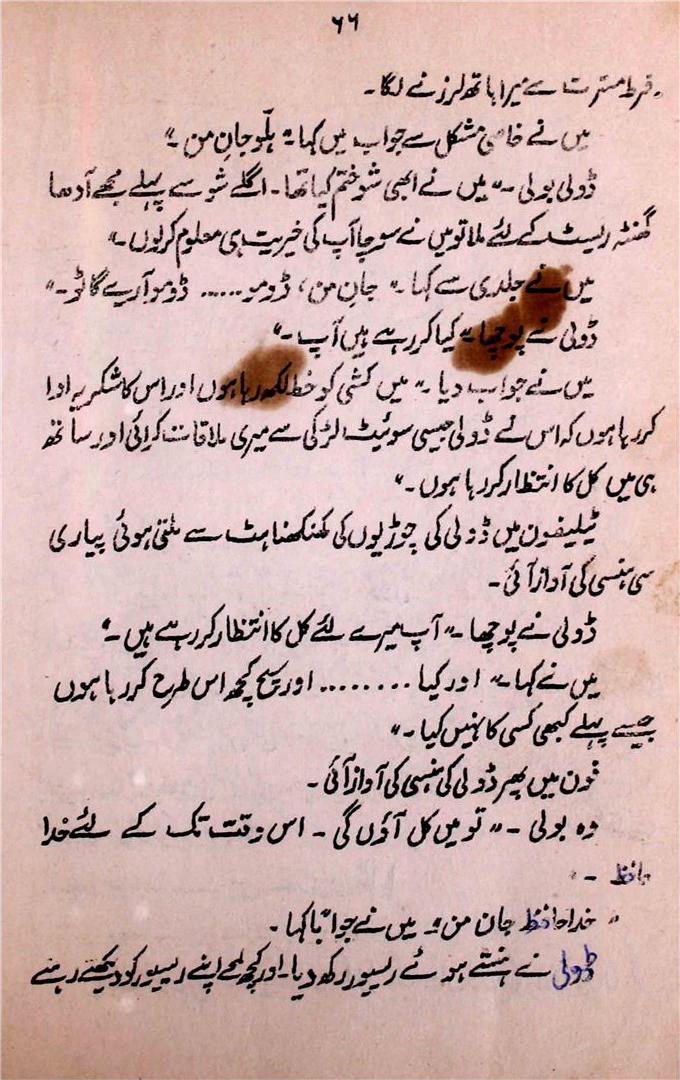 ۶۶
فرط مسّرت سے میرا ہاتھ لرزنے لگا۔
میں نے خاصی مشکل سے جواب میں کہا۔ "ہلّو جانِ من۔"
ڈولی بولی۔ "میں نے ابھی شو ختم کیا تھا۔ اگلے شو سے پہلے مجھے آدھا
گھنٹہ ریسٹ کے لئے ملا تو میں نے سوچا آپ کی خیریت ہی معلوم کر لوں۔"
میں نے جلدی سے کہا۔ "جانِ من، ڈومو ...... ڈومو آرے گاٹو۔"
ڈولی نے پوچھا۔ "کیا کر رہے ہیں آپ۔"
میں نے جواب دیا۔ "میں کشی کو خط لکھ رہا ہوں اور اس کا شکریہ ادا
کر رہا ہوں کہ اس نے ڈولی جیسی سوئیٹ لڑکی سے میری ملاقات کرائی اور ساتھ
ہی میں کل کا انتظار کر رہا ہوں۔"
ٹیلیفون میں ڈولی کی چوڑیوں کی کھنکھناہٹ سے ملتی ہوئی پیاری
سی ہنسی کی آواز آئی۔
ڈولی نے پوچھا۔ "آپ میرے لئے کل کا انتظار کر رہے ہیں۔"
میں نے کہا۔ "اور کیا ........ اور سچ کچھ اس طرح کر رہا ہوں
جیسے پہلے کبھی کسی کا نہیں کیا۔"
فون میں پھر ڈولی کی ہنسی کی آواز آئی۔
وہ بولی۔ "تو میں کل آؤں گی۔ اس وقت تک کے لئے خدا
حافظ۔"
"خدا حافظ جان من۔" میں نے جواباً کہا۔
ڈولی نے ہنستے ہوئے ریسیور رکھ دیا۔ اور کچھ لمحے اپنے ریسیور کو دیکھتے رہنے